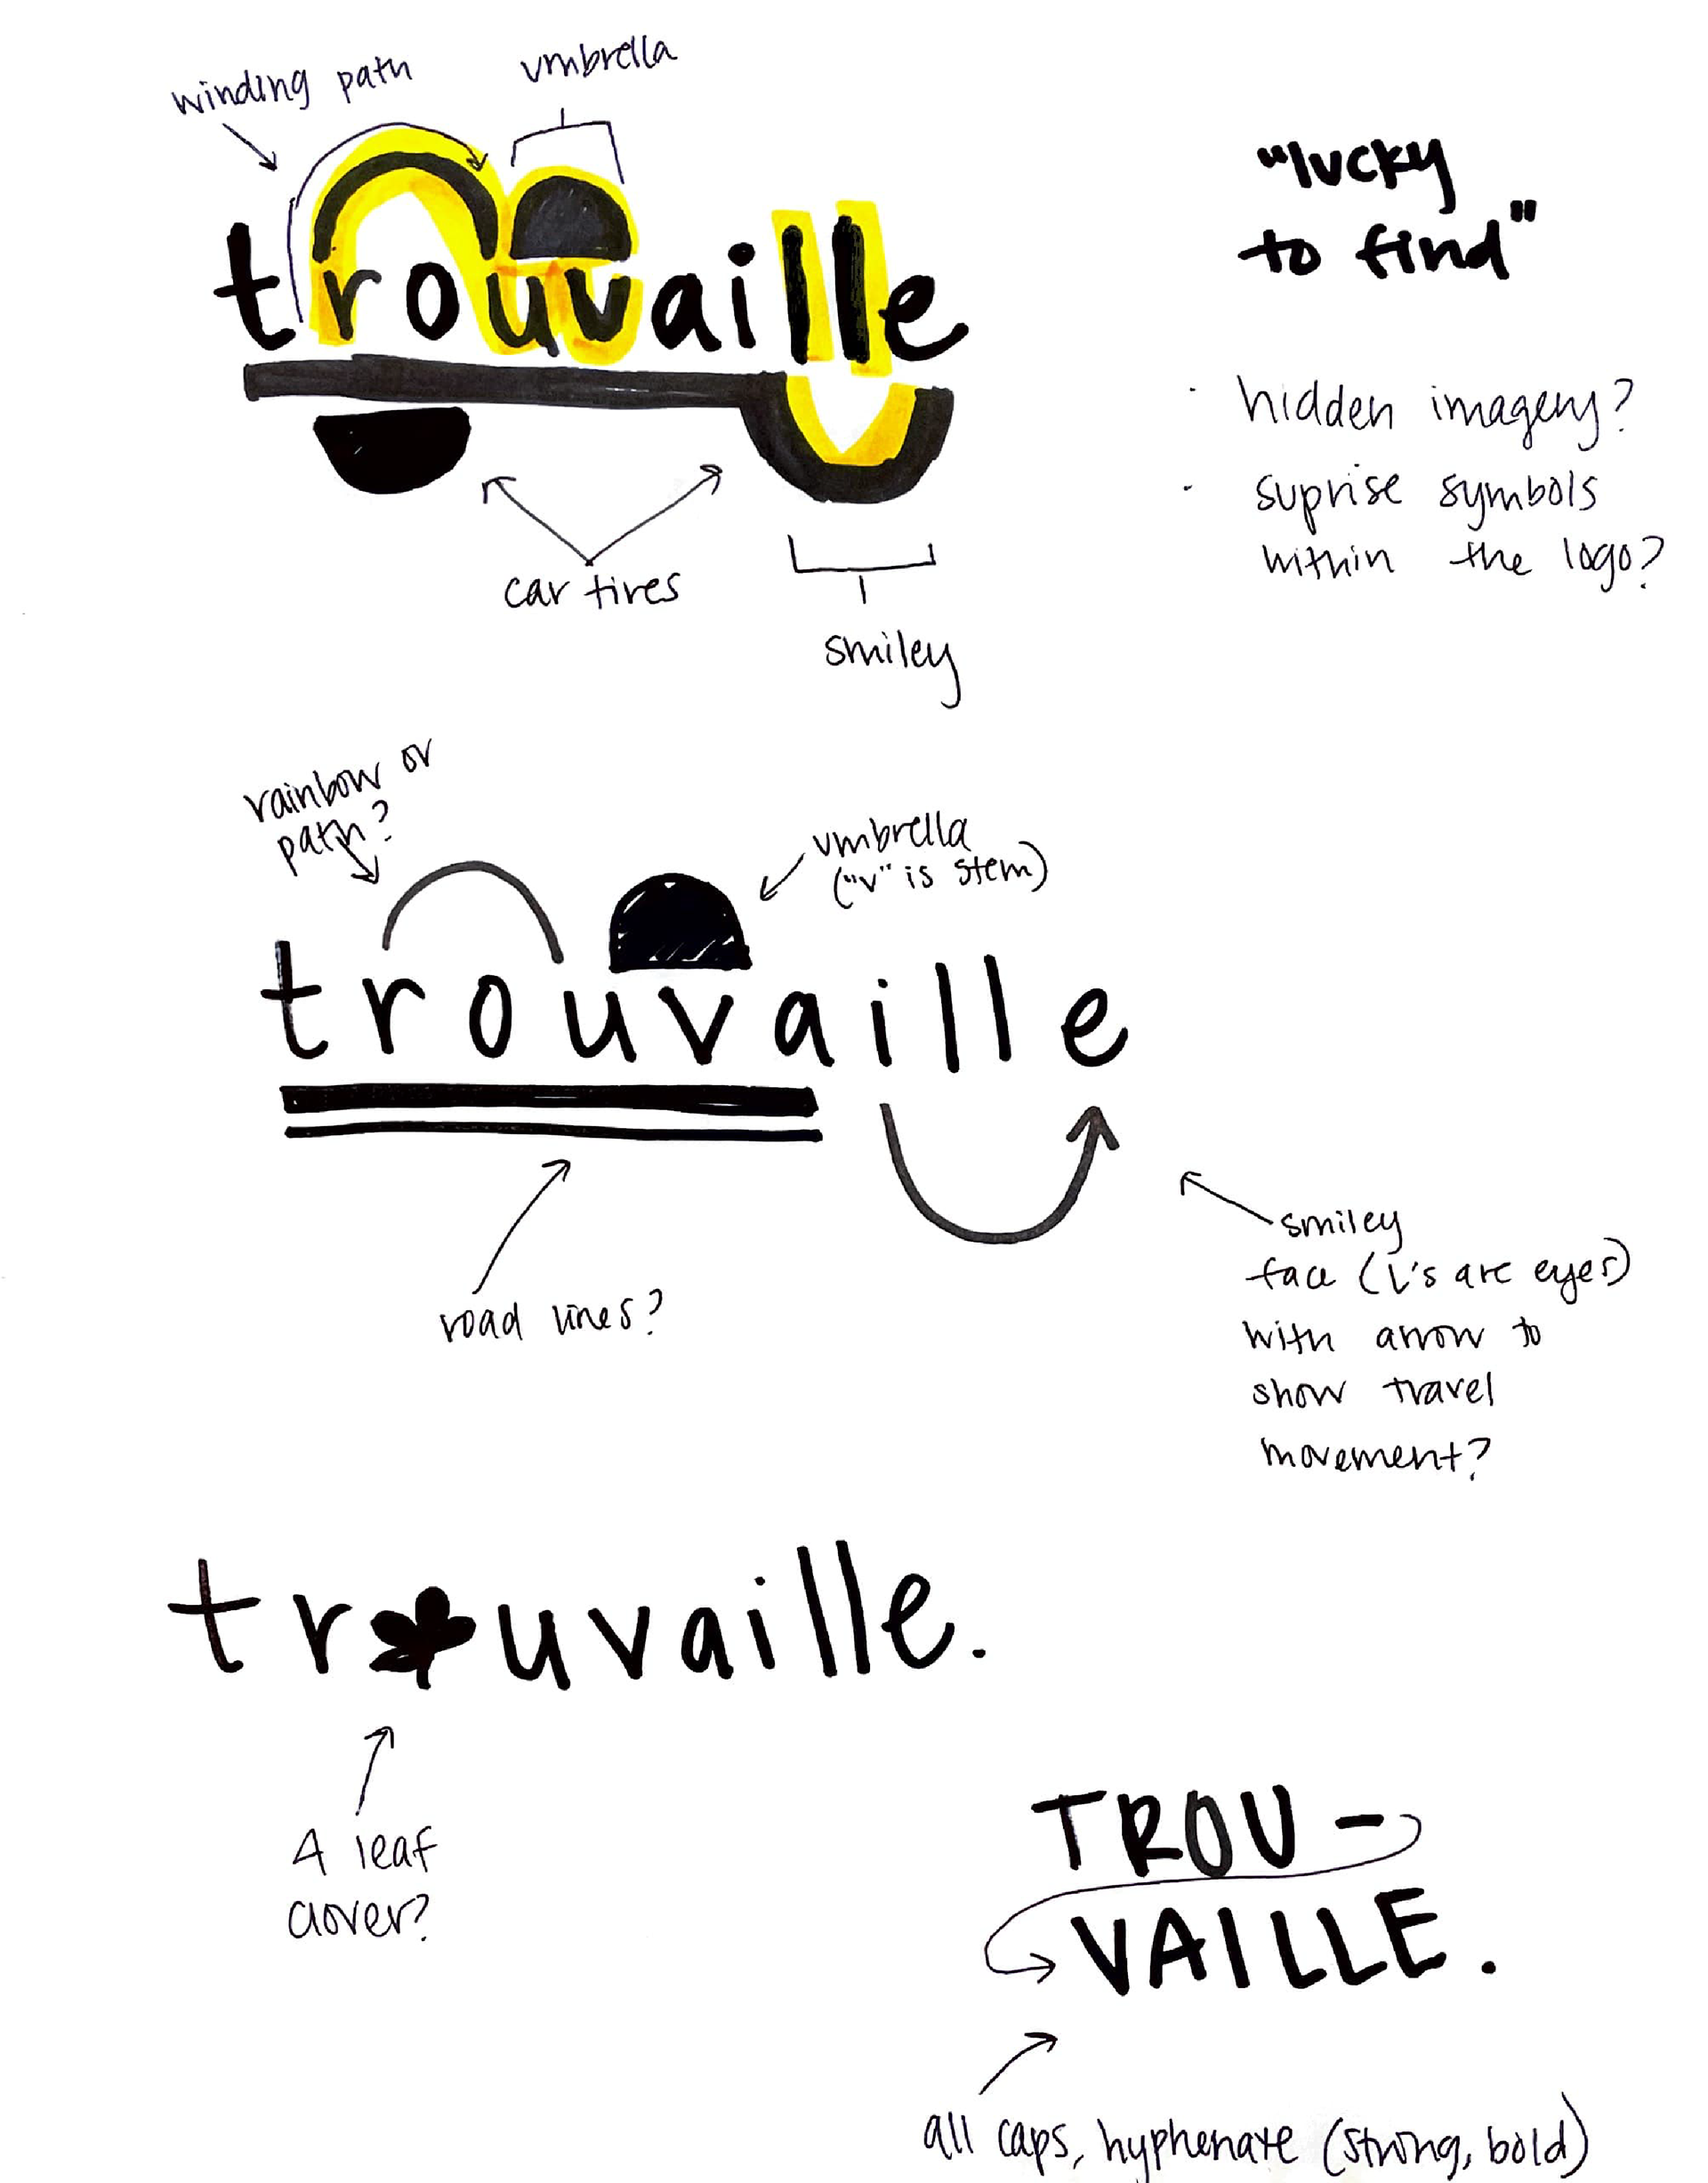 winding path
umbrella
trouvaille
car tires
smiley
"lucky
to find"
· hidden imagery?
· suprise symbols
within the logo?
rainbow or
path?
umbrella
("v" is stem)
trouvaille
road lines?
smiley
face (L's are eyes)
with arrow to
show travel
movement?
tr uvaille.
4 leaf
clover?
TROU-
VAILLE.
all caps, hyphenate (strong, bold)